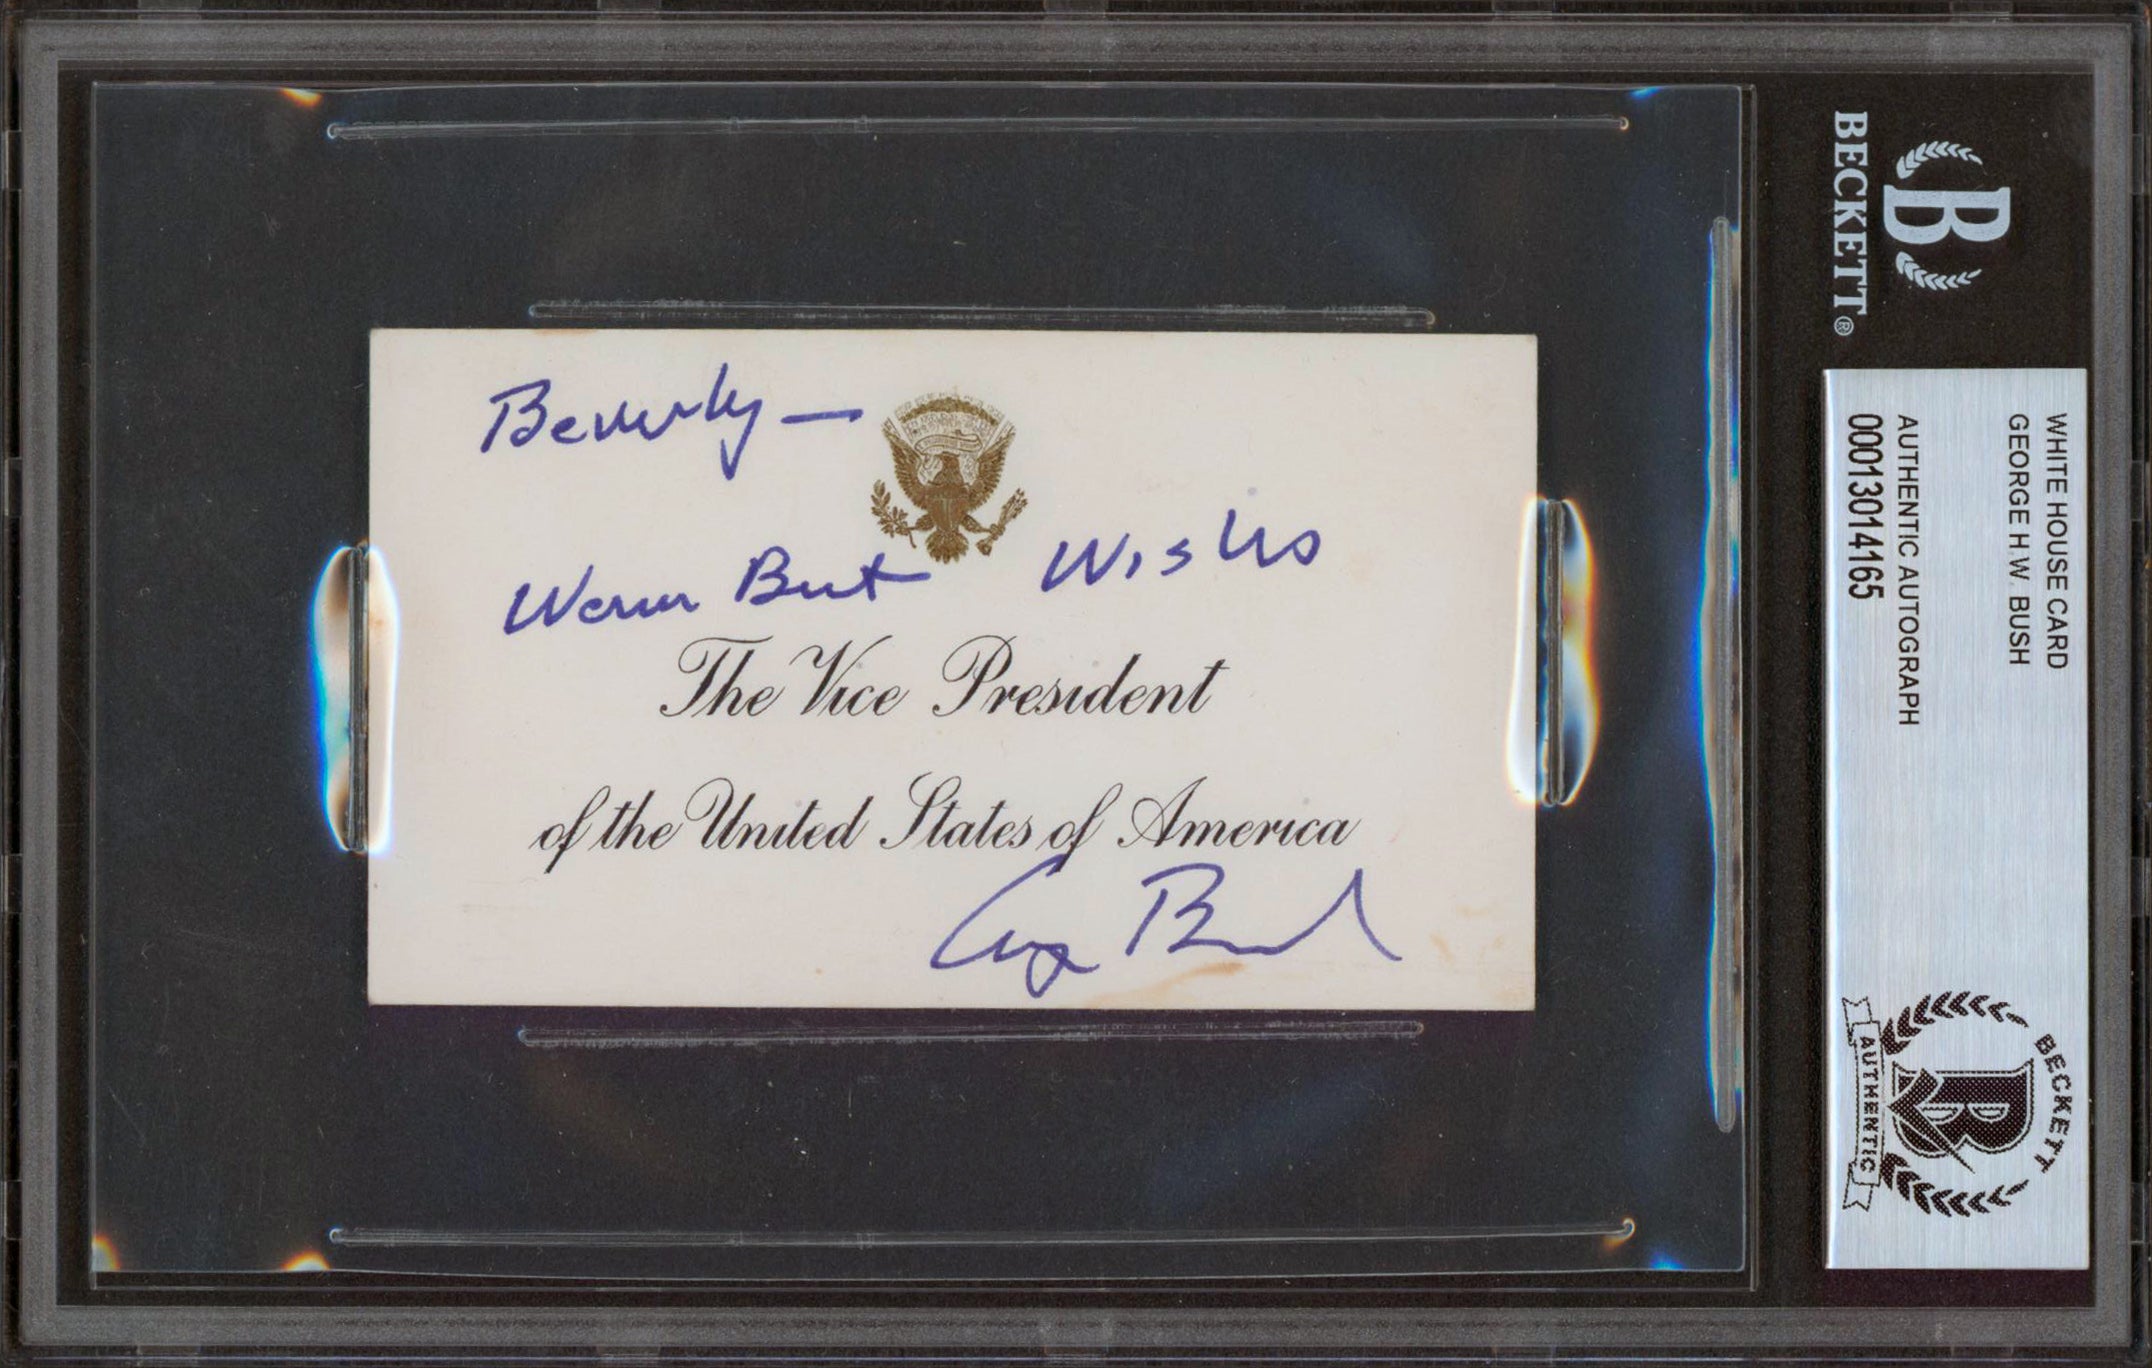 Beverly —
Warm Best Wishes
The Vice President
of the United States of America
George Bush
BECKETT®
WHITE HOUSE CARD
GEORGE H.W. BUSH
AUTHENTIC AUTOGRAPH
00013014165
BECKETT
B
AUTHENTIC